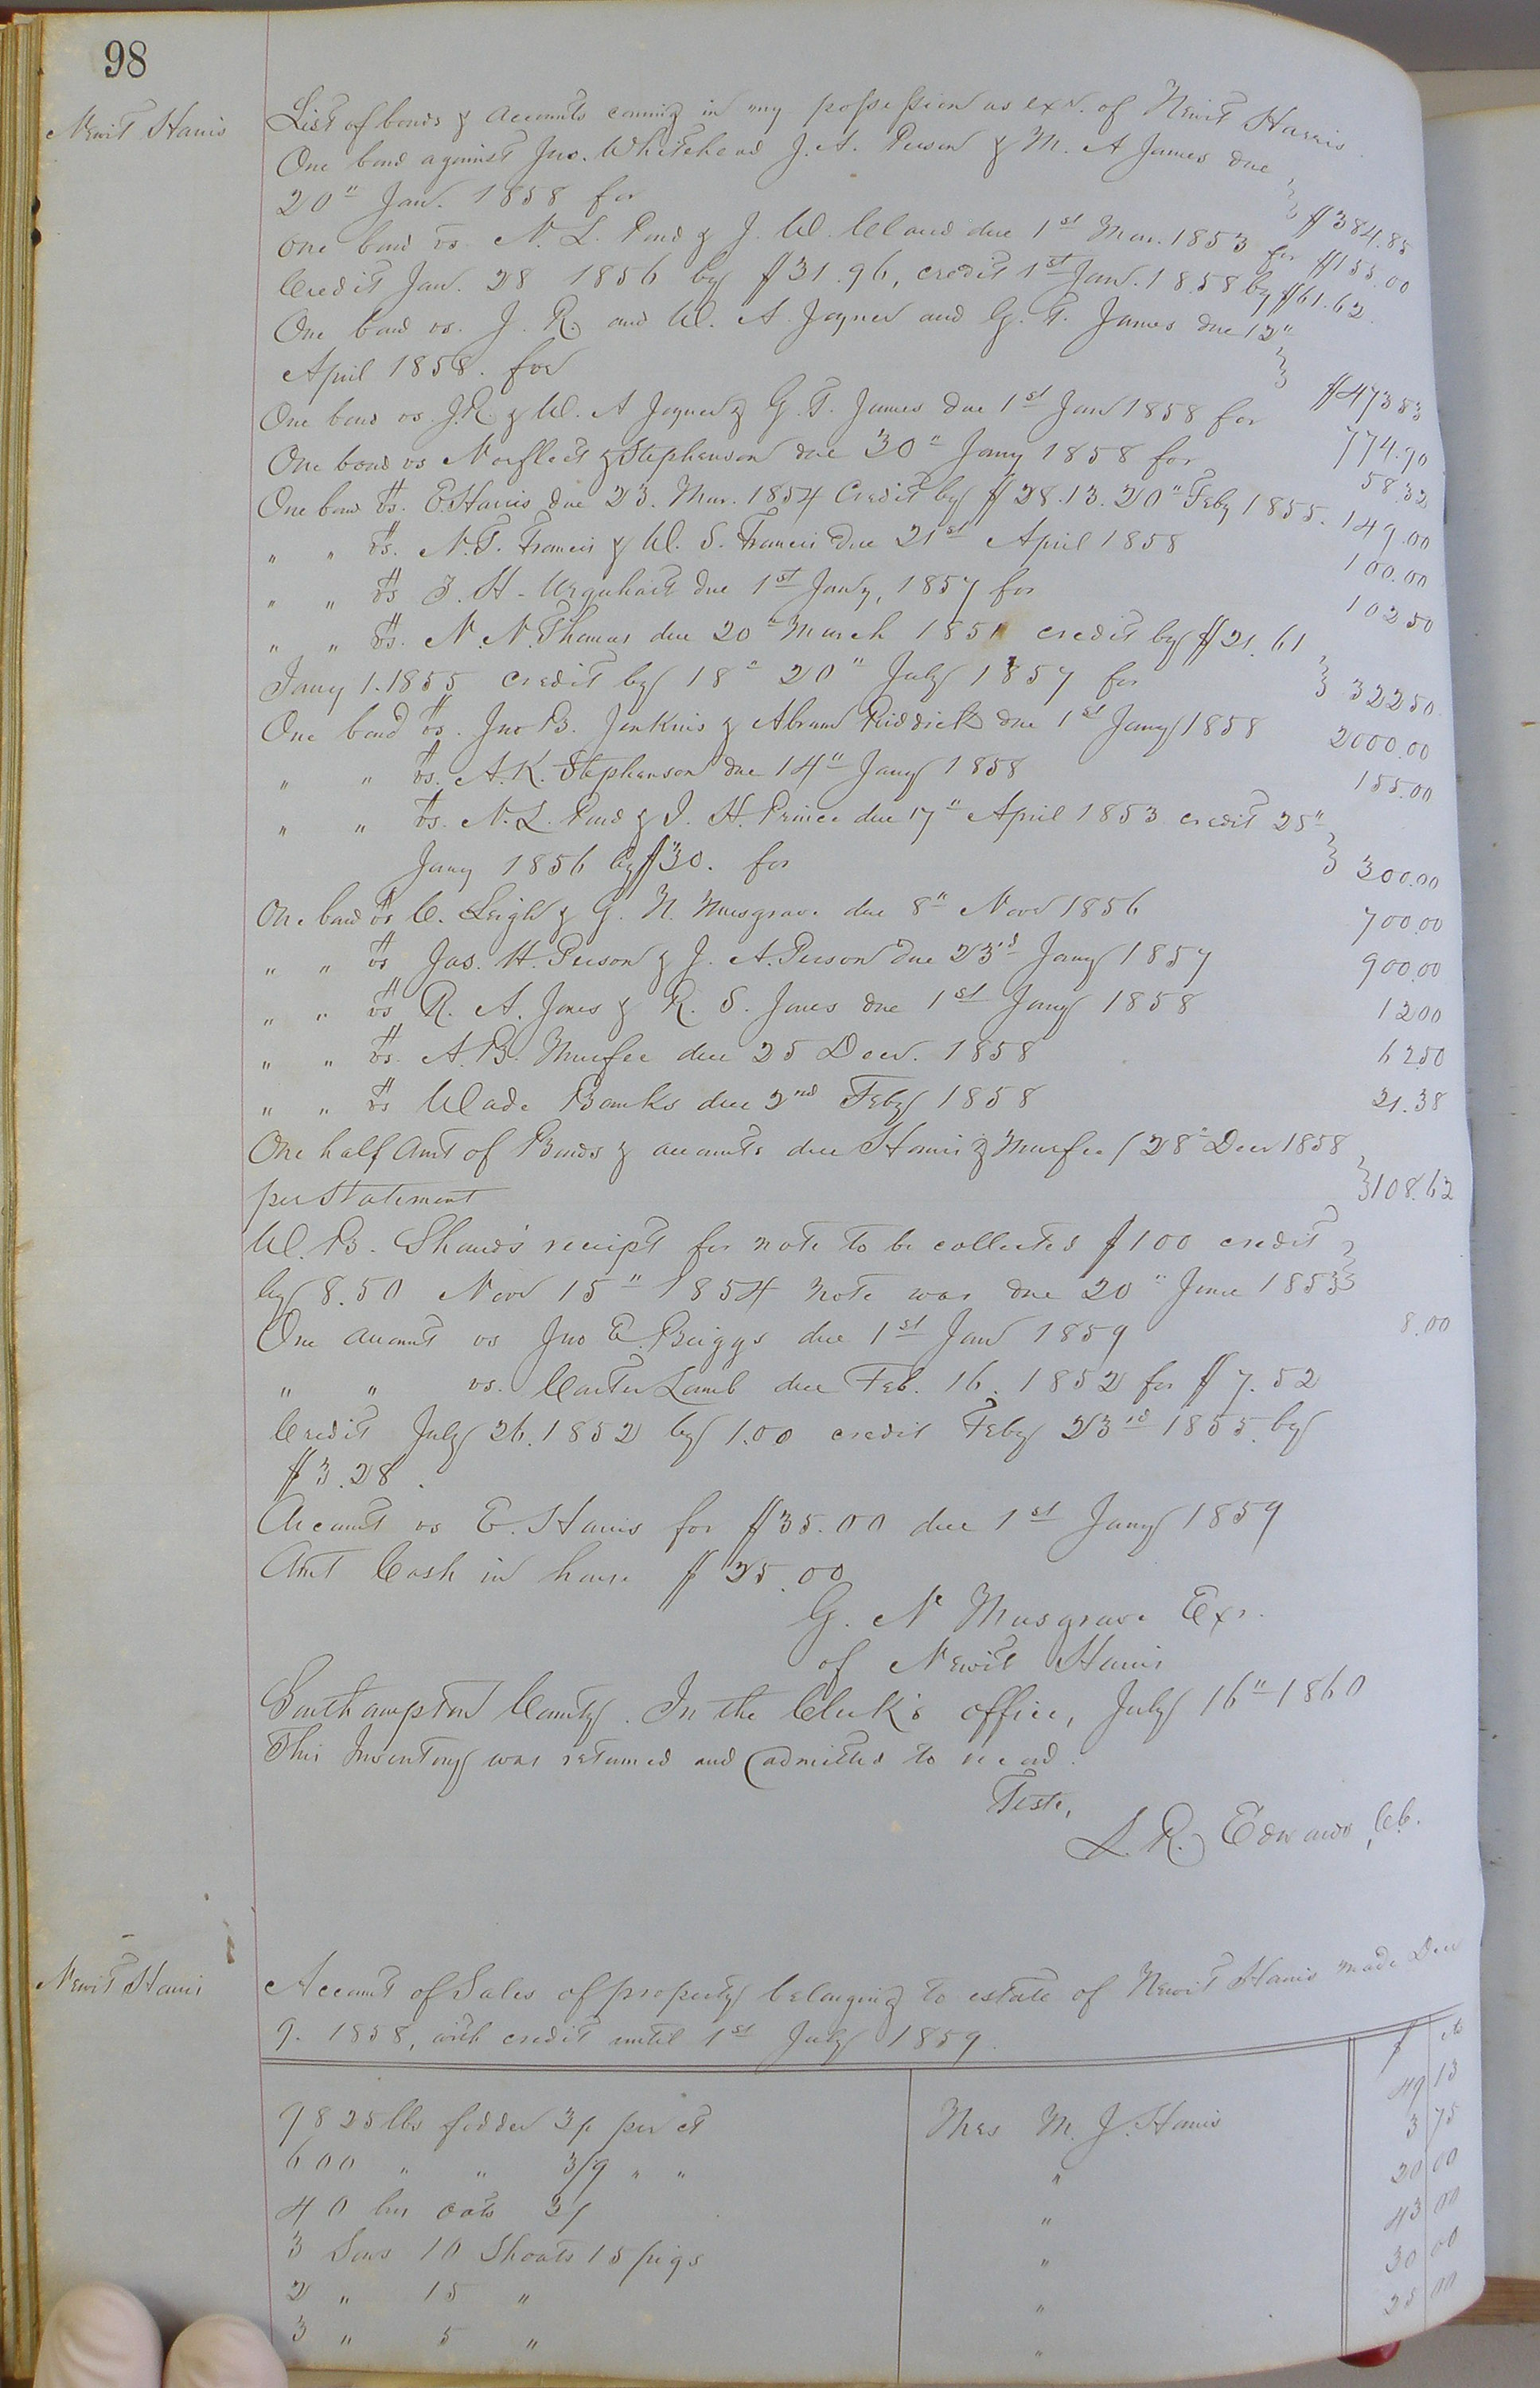 98
Newit Harris
List of bonds & accounts coming in my possession as exr. of Newit Harris.
One bond against Jno. Whitehead J. A. Person & M. A James due
20" Jan. 1858 for $384.85
One bond vs. N. L. Pond & J. W. Cland due 1st Mar. 1853 for $155.00
Credit Jan. 28 1856 by $31.96, credit 1st Jan. 1858 by $61.62.
One bond vs. J. R. and W. A. Joyner and G. T. James due 12"
April 1858. for $473 83
One bond vs. J. R. & W. A Joyner & G. T. James due 1st Jan 1858 for 774.90
One bond vs Norfleet & Stephenson due 30" Jany 1858 for 58.32
One bond vs. E. Harris due 23. Mar. 1854 Credit by $28.13. 20" Feby 1855. 149.00
" " vs. N. T. Francis & W. S. Francis due 21st April 1858 100.00
" " vs J. H. Urquhart due 1st Jany, 1857 for 102 50
" " vs. N. N. Thomas due 20" March 1851 credit by $21.61
Jany 1. 1855 credit by 18" 20" July 1857 for 322 50
One bond vs. Jno B. Jenkins & Abram Riddick due 1st Jany 1858 2000.00
" " vs. A. K. Stephenson due 14" Jany 1858 155.00
" " vs. N. L. Pond & J. H. Prince due 17" April 1853 credit 25"
Jany 1856 by $30. for 300.00
One bond vs C. Leigh & G. N. Musgrave due 8" Novr 1856 700.00
" " vs Jas. H. Person & J. A. Person due 23rd Jany 1857 900.00
" " vs R. A. Jones & R. S. Jones due 1st Jany 1858 12 00
" " vs. A. B. Murfee due 25 Decr. 1858 62.50
" " vs Wade Banks due 2nd Feby 1858 21.38
One half Amt of Bonds & accounts due Harris & Murfee / 28" Decr 1858
per Statement 108.62
W. B. Shands receipt for note to be collected $100 credit
by 8.50 Novr 15" 1854 note was due 20" June 1853
One account vs Jno E. Briggs due 1st Jan 1859 8.00
" " vs. Carter Lamb due Feb. 16. 1852 for $7.52
Credit July 26. 1852 by 1.00 credit Feby 23rd 1855. by
$3.28.
Account vs E. Harris for $35.00 due 1st Jany 1859
Amt Cash in house $25.00
G. N Musgrave Exr.
of Newit Harris
Southampton County. In the Clerk's office, July 16" 1860
This Inventory was returned and admitted to record.
Teste,
L. R. Edwards, Cb.
Newit Harris
Account of Sales of property belonging to estate of Newit Harris made Decr
9. 1858, with credit until 1st July 1859.
$ cts
9825 lbs fodder 3/ per ct Mrs M. J. Harris 49 13
600 " " 3/9 " " " 3 75
40 bus oats 3/ " 20 00
3 Sows 10 Shoats 15 pigs " 43 00
2 " 15 " " 30 00
3 " 5 " " 25 00